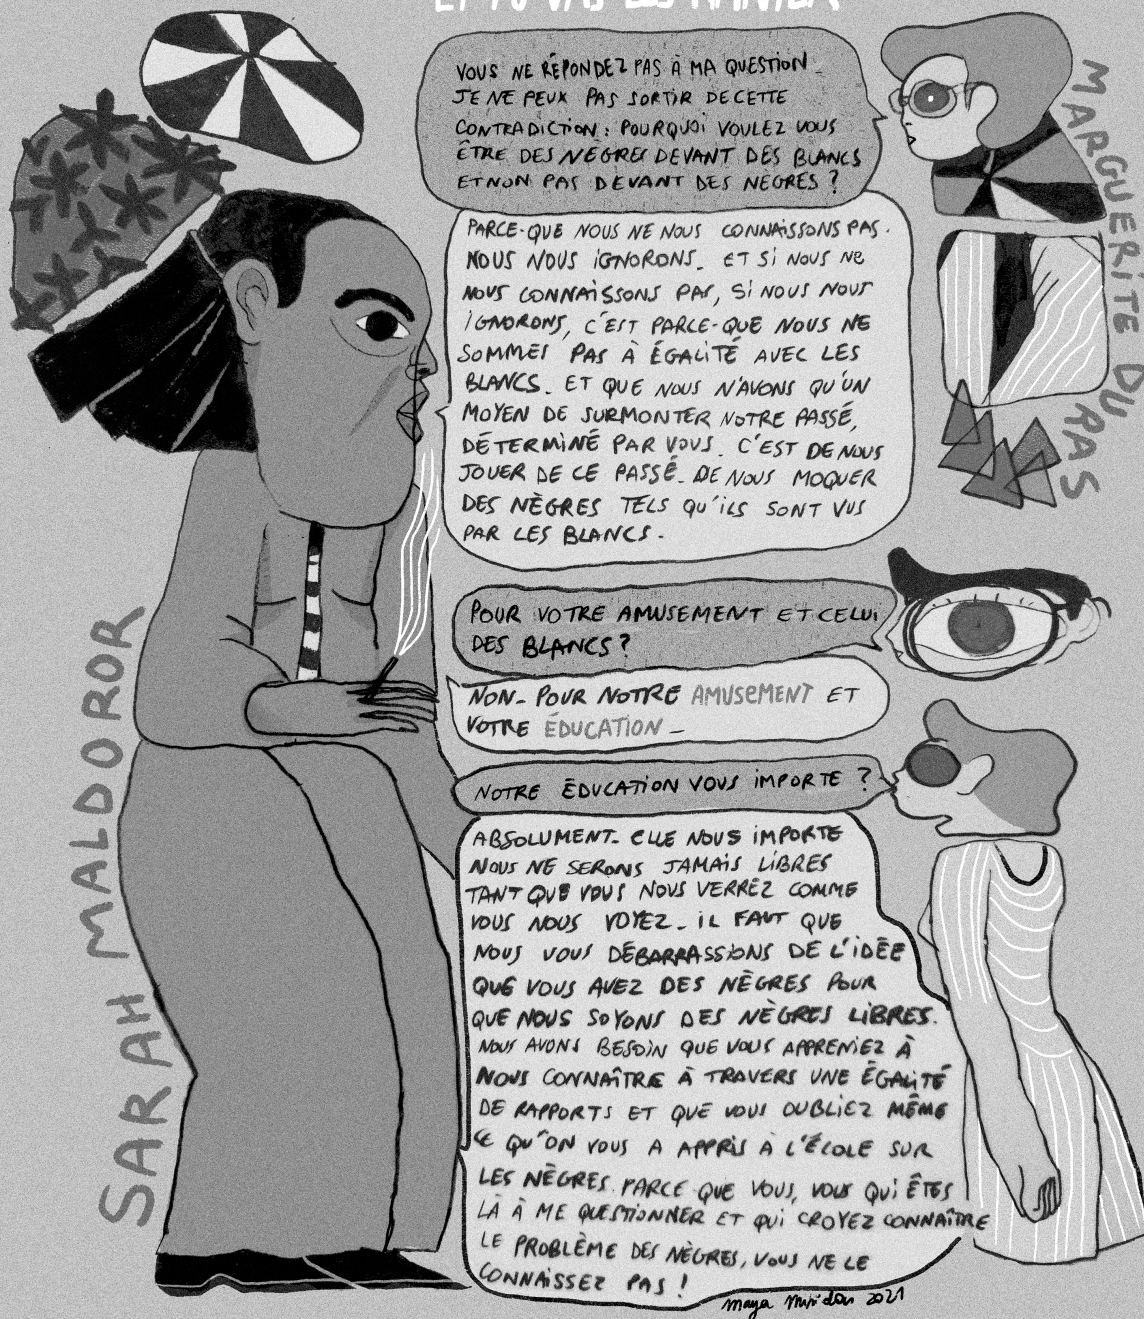 ET TU VAS LES MANIER
VOUS NE RÉPONDEZ PAS À MA QUESTION_
JE NE PEUX PAS SORTIR DE CETTE
CONTRADICTION : POURQUOI VOULEZ VOUS
ÊTRE DES NÈGRES DEVANT DES BLANCS
ET NON PAS DEVANT DES NÈGRES ?
MARGUERITE DURAS
PARCE-QUE NOUS NE NOUS CONNAISSONS PAS.
NOUS NOUS IGNORONS_ ET SI NOUS NE
NOUS CONNAISSONS PAS, SI NOUS NOUS
IGNORONS, C'EST PARCE-QUE NOUS NE
SOMMES PAS À ÉGALITÉ AVEC LES
BLANCS. ET QUE NOUS N'AVONS QU'UN
MOYEN DE SURMONTER NOTRE PASSÉ,
DÉTERMINÉ PAR VOUS. C'EST DE NOUS
JOUER DE CE PASSÉ. DE NOUS MOQUER
DES NÈGRES TELS QU'ILS SONT VUS
PAR LES BLANCS.
POUR VOTRE AMUSEMENT ET CELUI
DES BLANCS ?
NON_ POUR NOTRE AMUSEMENT ET
VOTRE ÉDUCATION_
NOTRE ÉDUCATION VOUS IMPORTE ?
ABSOLUMENT_ ELLE NOUS IMPORTE
NOUS NE SERONS JAMAIS LIBRES
TANT QUE VOUS NOUS VERREZ COMME
VOUS NOUS VOYEZ_ IL FAUT QUE
NOUS VOUS DÉBARRASSIONS DE L'IDÉE
QUE VOUS AVEZ DES NÈGRES POUR
QUE NOUS SOYONS DES NÈGRES LIBRES.
NOUS AVONS BESOIN QUE VOUS APPRENIEZ À
NOUS CONNAÎTRE À TRAVERS UNE ÉGALITÉ
DE RAPPORTS ET QUE VOUS OUBLIEZ MÊME
CE QU'ON VOUS A APPRIS À L'ÉCOLE SUR
LES NÈGRES. PARCE QUE VOUS, VOUS QUI ÊTES
LÀ À ME QUESTIONNER ET QUI CROYEZ CONNAÎTRE
LE PROBLÈME DES NÈGRES, VOUS NE LE
CONNAISSEZ PAS !
SARAH MALDOROR
maya 2021